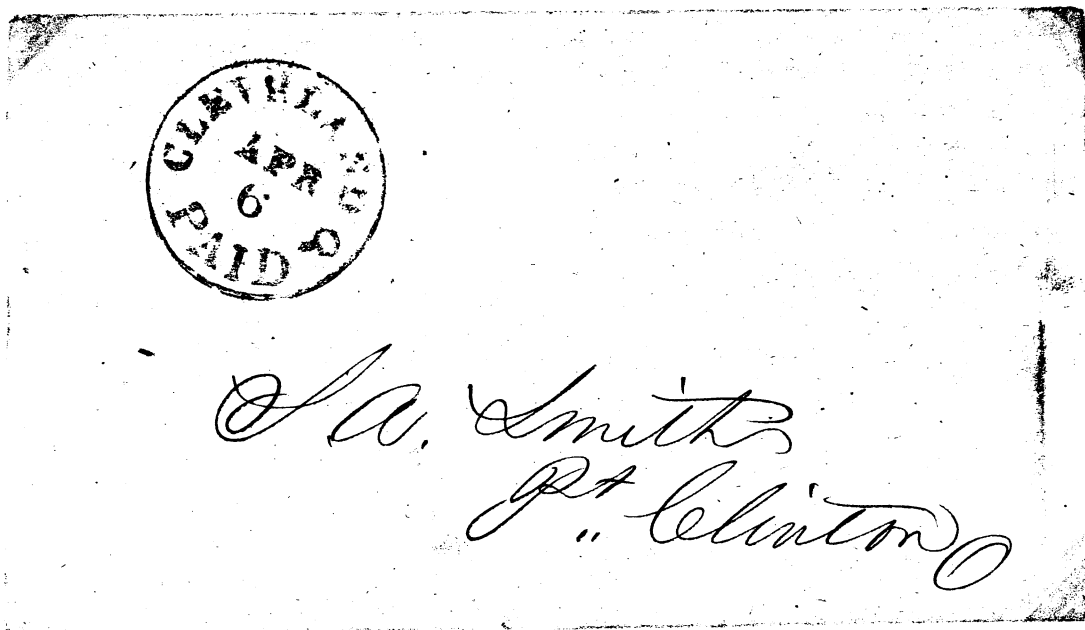 CLEVELAND O
APR
6
PAID
S. A. Smith
Pt Clinton O